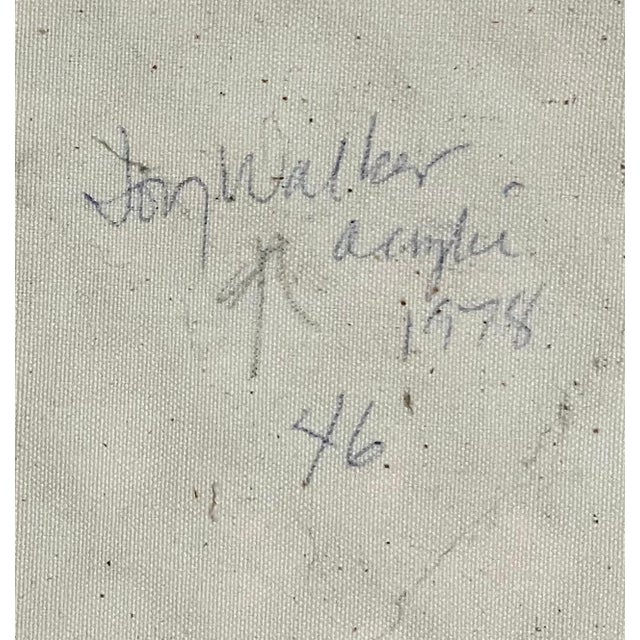 Joy Walker
acrylic
1978
46